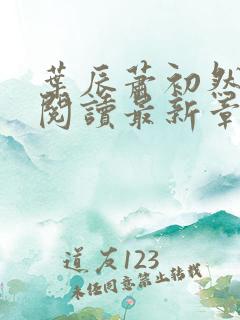 葉辰蕭初然
閱讀最新章
道友123
未經同意禁止轉載